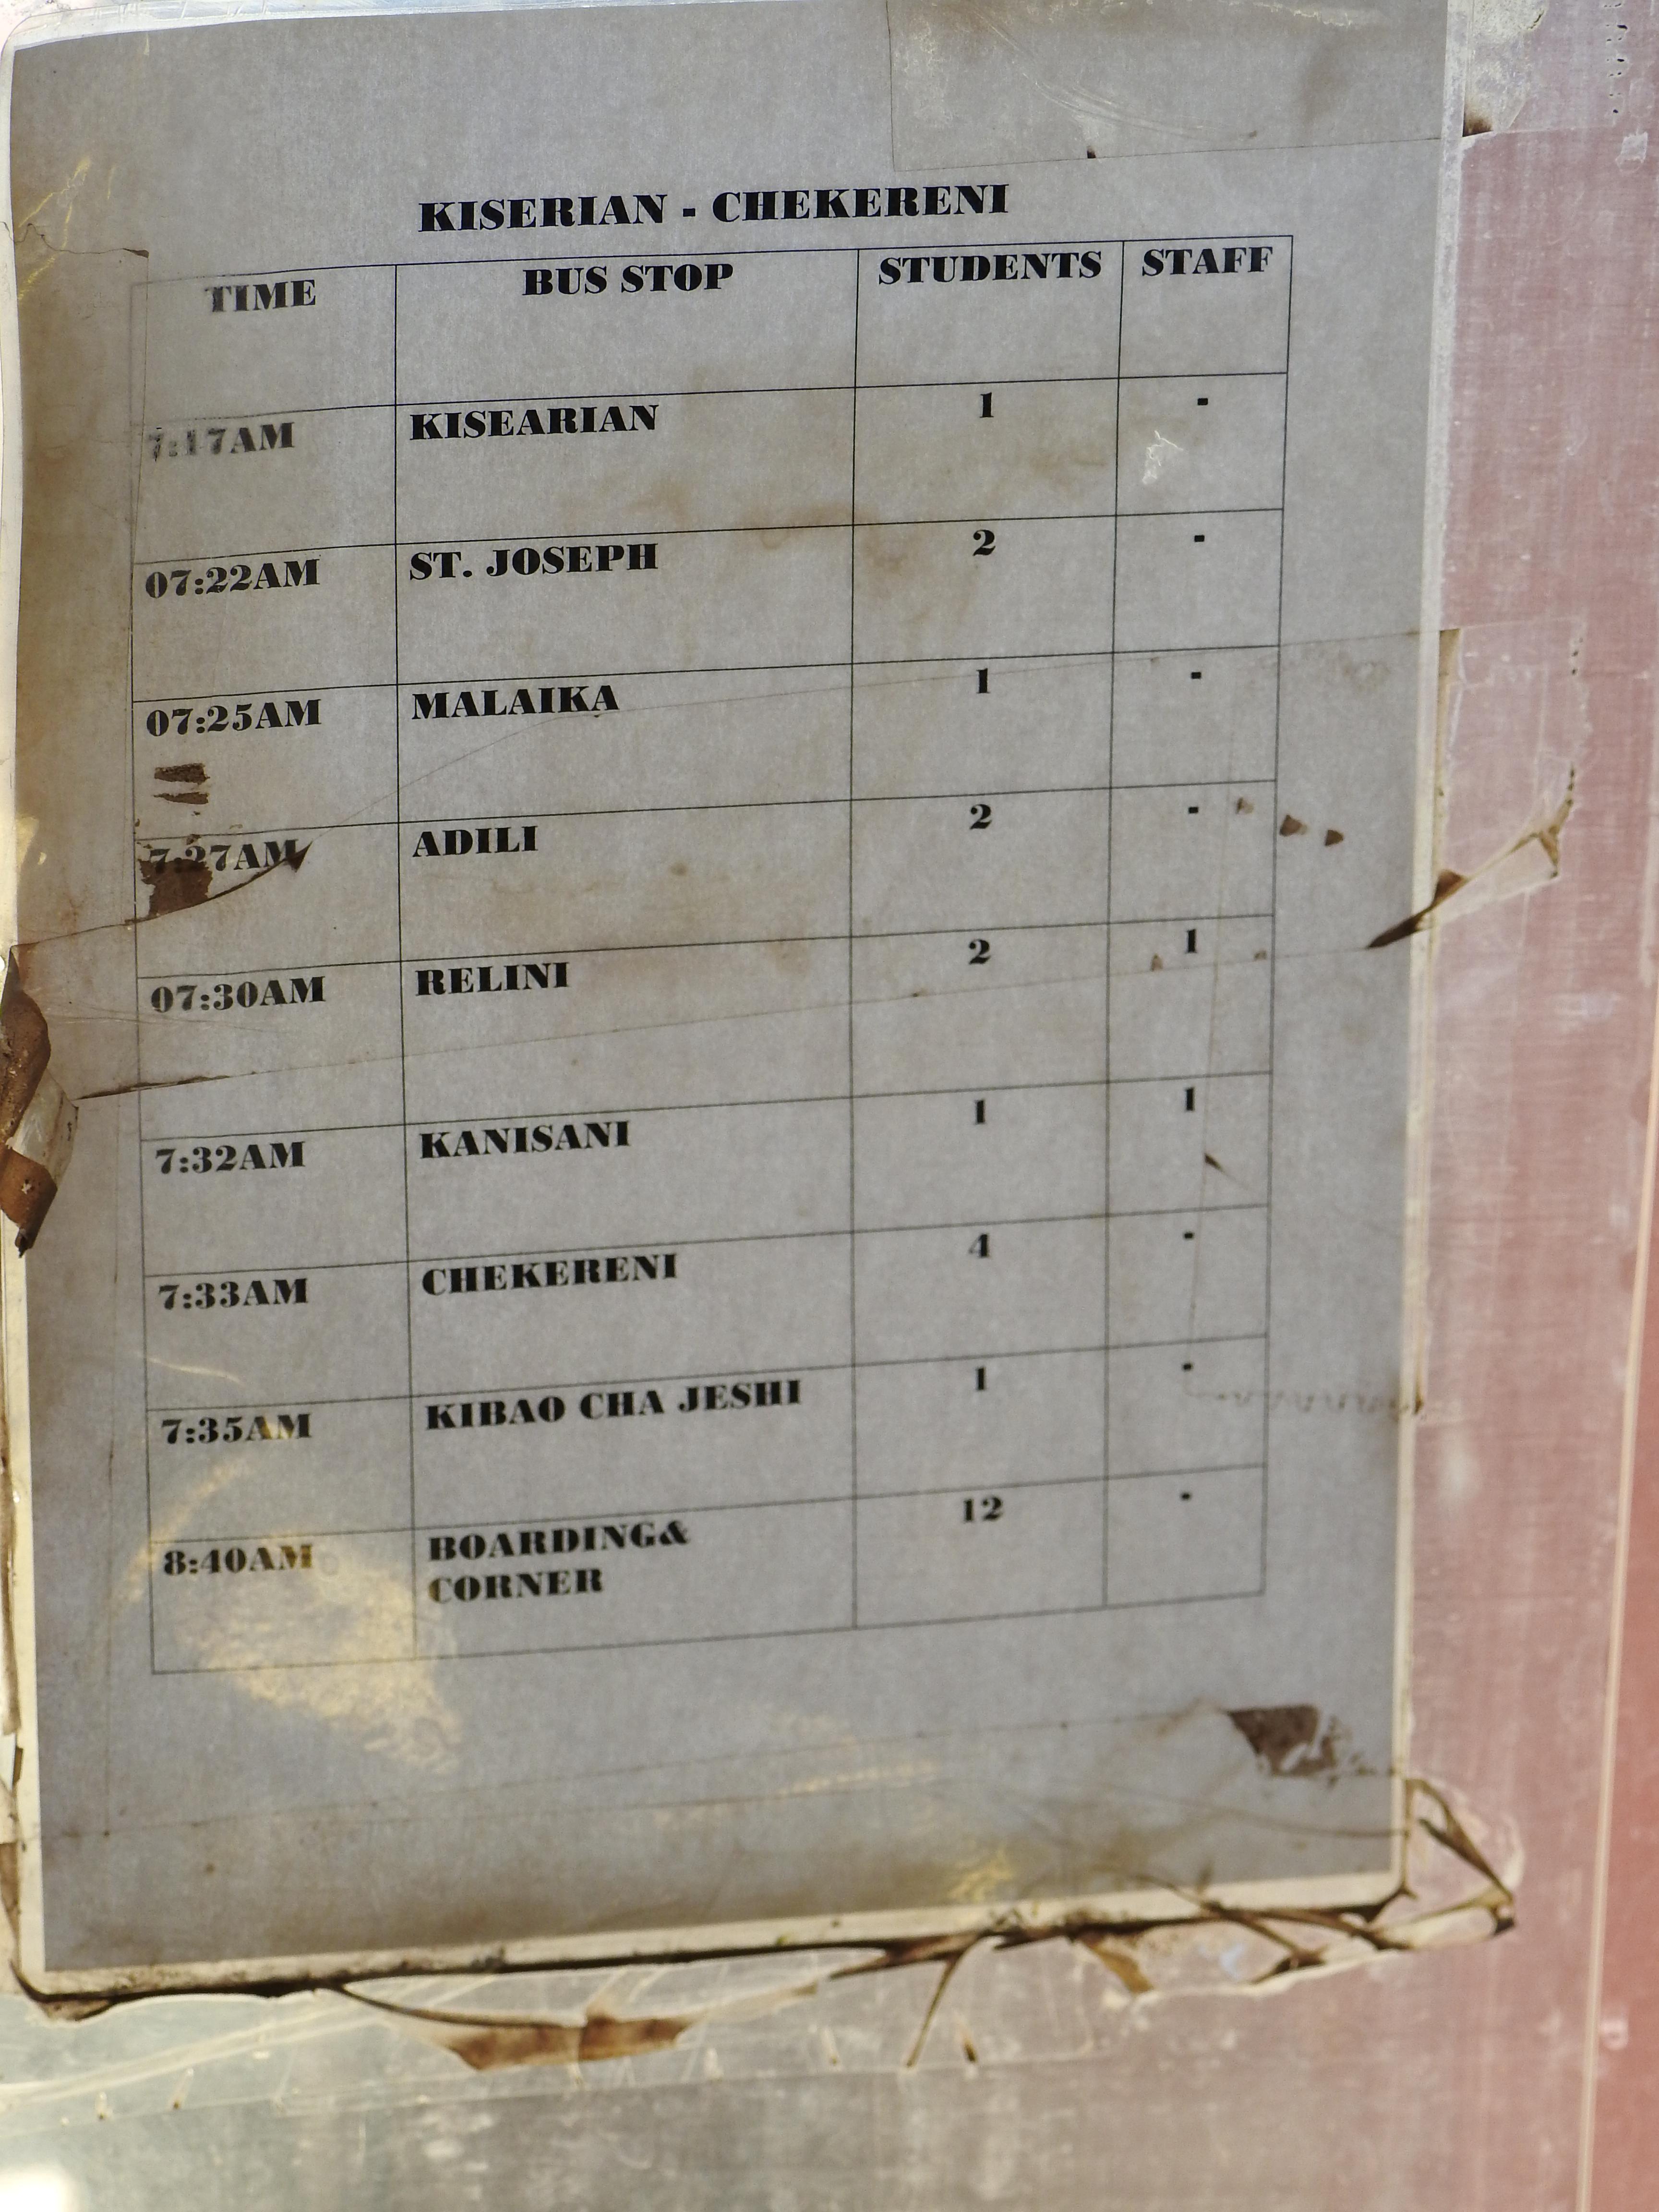 KISERIAN - CHEKERENI
TIME BUS STOP STUDENTS STAFF
7:17AM KISEARIAN 1 -
07:22AM ST. JOSEPH 2 -
07:25AM MALAIKA 1 -
7:27AM ADILI 2 -
07:30AM RELINI 2 1
7:32AM KANISANI 1 1
7:33AM CHEKERENI 4 -
7:35AM KIBAO CHA JESHI 1 -
8:40AM BOARDING& 12 -
CORNER